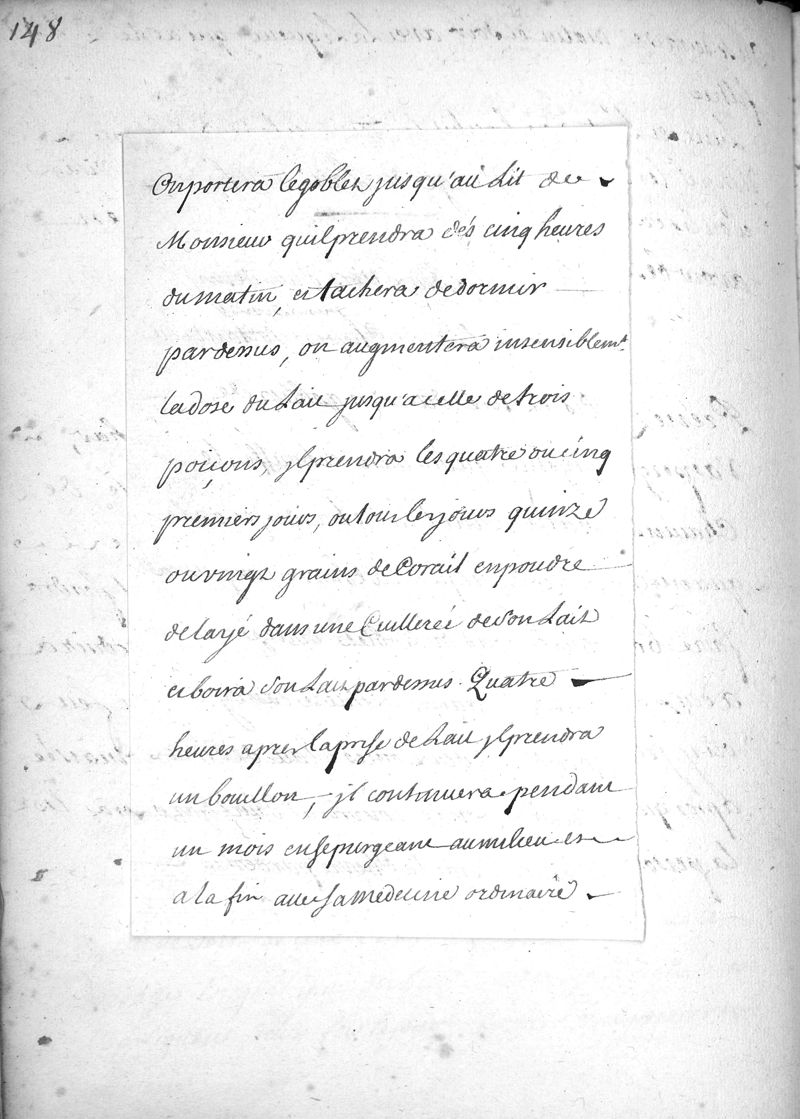 148
On portera le goblet jusqu'au Lit de
Monsieur quil prendra dés cinq heures
du matin, et tachera de dormir
pardessus, on augmentera insensiblemt.
la dose du Lait jusqu'a celle de trois
poiçons, jl prendra les quatre ou cinq
premiers jours, ou tous les jours quinze
ou vingt grains de Corail en poudre
delayé dans une Cuillereé de son Lait
et boira son Lait pardessus. Quatre
heures apres la prise de Lait jl prendra
un bouillon, jl continuera pendant
un mois en se purgeant au milieu et
a la fin avec sa medecine ordinaire.